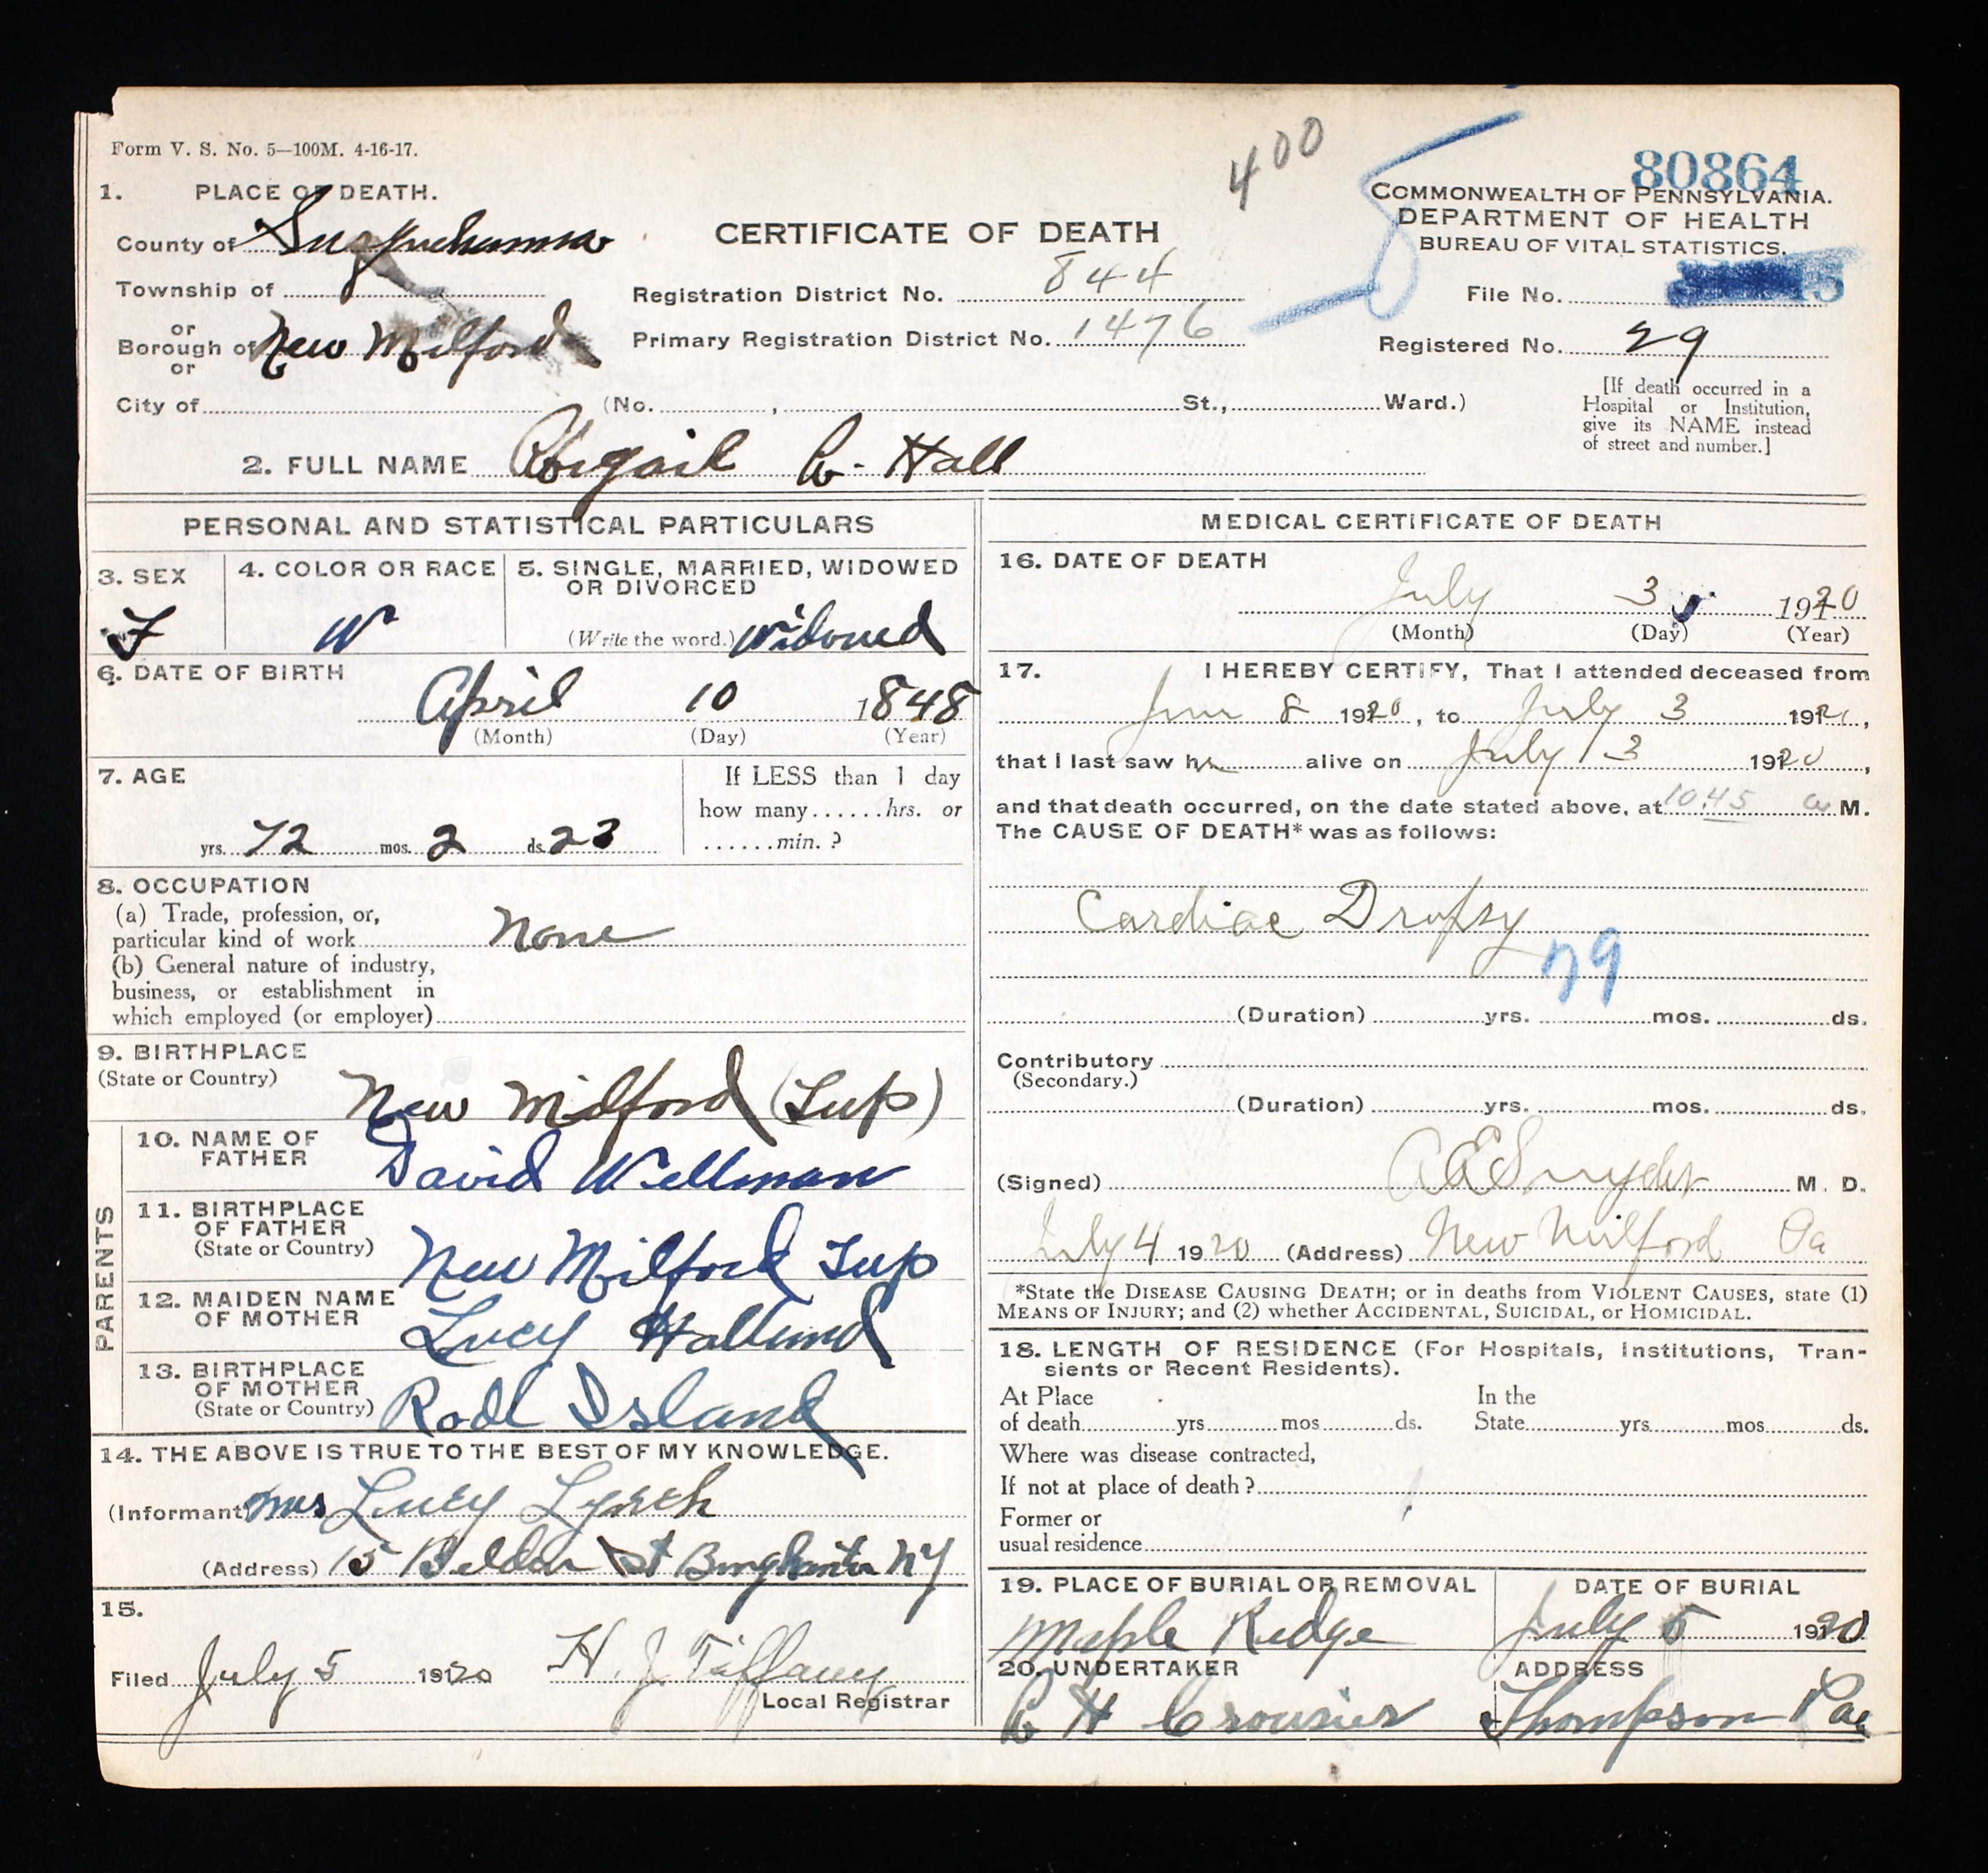 Form V. S. No. 5—100M. 4-16-17.
400
80864
1. PLACE OF DEATH.
COMMONWEALTH OF PENNSYLVANIA.
DEPARTMENT OF HEALTH
BUREAU OF VITAL STATISTICS.
County of Susquehanna
CERTIFICATE OF DEATH
Township of
Registration District No. 844
File No.
or
Borough of New Milford
or
Primary Registration District No. 1476
Registered No. 29
City of (No. , St., Ward.)
[If death occurred in a
Hospital or Institution,
give its NAME instead
of street and number.]
2. FULL NAME Abigail C. Hall
PERSONAL AND STATISTICAL PARTICULARS
3. SEX
F
4. COLOR OR RACE
W
5. SINGLE, MARRIED, WIDOWED
OR DIVORCED
(Write the word.) Widowed
6. DATE OF BIRTH
April 10 1848
(Month) (Day) (Year)
7. AGE
yrs. 72 mos. 2 ds. 23
If LESS than 1 day
how many......hrs. or
......min. ?
8. OCCUPATION
(a) Trade, profession, or,
particular kind of work None
(b) General nature of industry,
business, or establishment in
which employed (or employer)
9. BIRTHPLACE
(State or Country)
New Milford (Twp)
PARENTS
10. NAME OF
FATHER
David Wellman
11. BIRTHPLACE
OF FATHER
(State or Country)
New Milford Twp
12. MAIDEN NAME
OF MOTHER
Lucy
13. BIRTHPLACE
OF MOTHER
(State or Country)
Rode Island
14. THE ABOVE IS TRUE TO THE BEST OF MY KNOWLEDGE.
(Informant) Mrs Lucy Lynch
(Address) 15 Belden St Binghamton NY
15.
Filed July 5 1920 H. J. Tiffany
Local Registrar
MEDICAL CERTIFICATE OF DEATH
16. DATE OF DEATH
July 3 1920
(Month) (Day) (Year)
17. I HEREBY CERTIFY, That I attended deceased from
June 8 1920, to July 3 1920,
that I last saw her alive on July 3 1920,
and that death occurred, on the date stated above, at 10.45 a M.
The CAUSE OF DEATH* was as follows:
Cardiac Dropsy
79
(Duration) yrs. mos. ds.
Contributory
(Secondary.)
(Duration) yrs. mos. ds.
(Signed) A E Snyder M. D.
July 4 1920 (Address) New Milford Pa
*State the DISEASE CAUSING DEATH; or in deaths from VIOLENT CAUSES, state (1)
MEANS OF INJURY; and (2) whether ACCIDENTAL, SUICIDAL, or HOMICIDAL.
18. LENGTH OF RESIDENCE (For Hospitals, Institutions, Tran-
sients or Recent Residents).
At Place
of death yrs mos ds.
In the
State yrs mos ds.
Where was disease contracted,
If not at place of death ?
Former or
usual residence
19. PLACE OF BURIAL OR REMOVAL
Maple Ridge
DATE OF BURIAL
July 5 1920
20. UNDERTAKER
C H Crousier
ADDRESS
Thompson Pa